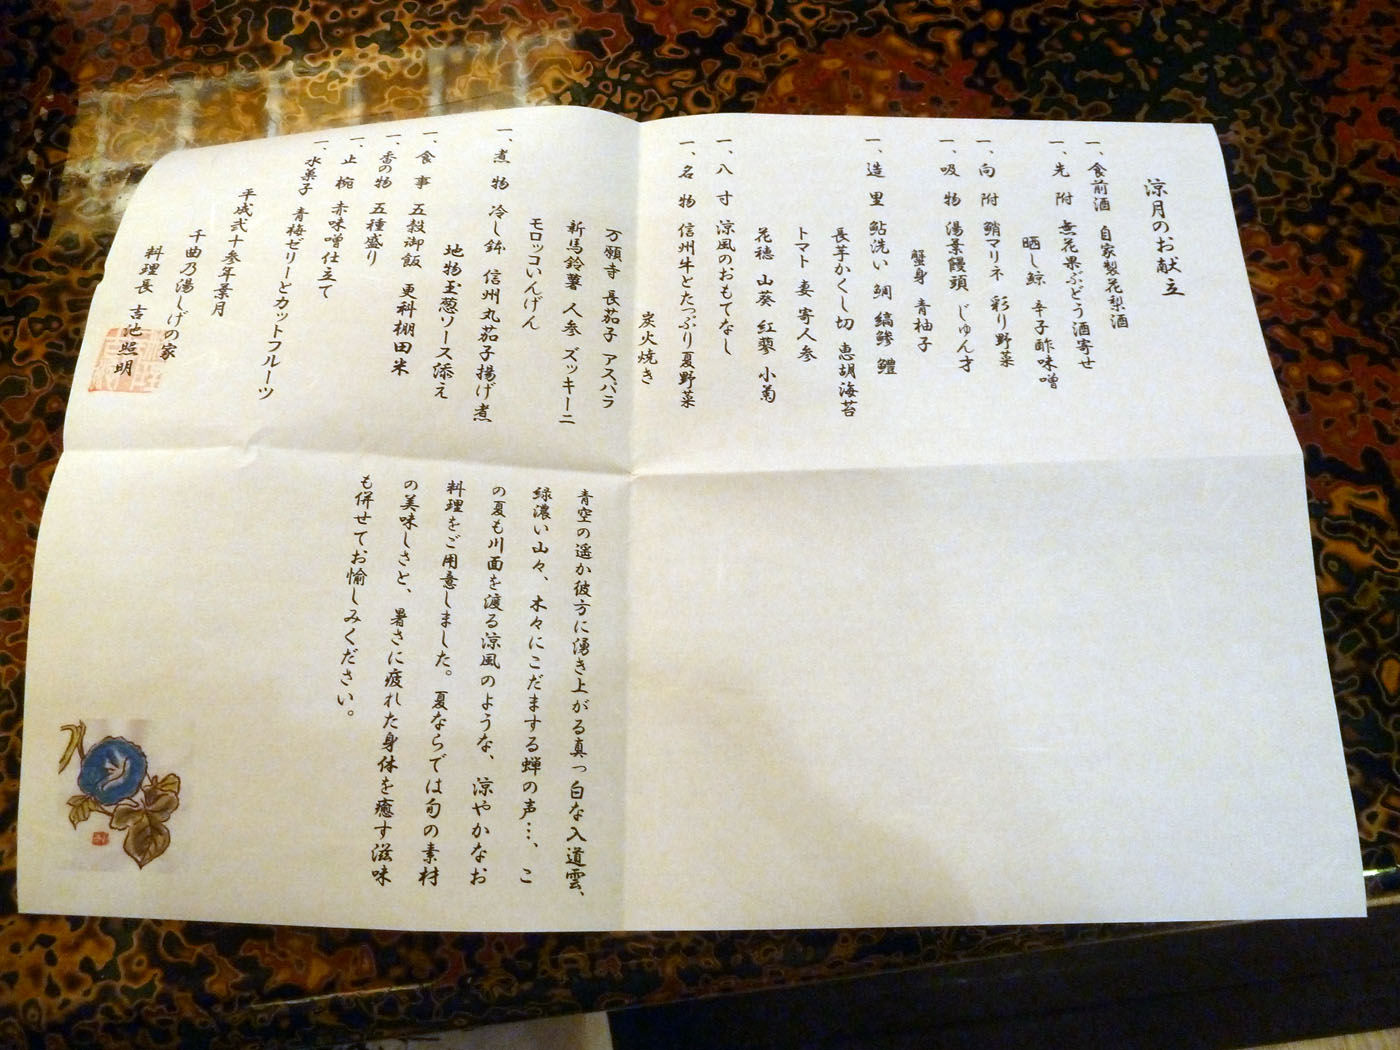 涼月のお献立
一、食前酒 自家製花梨酒
一、先附 無花果ぶどう酒寄せ
晒し鯨 辛子酢味噌
一、向附 鮹マリネ 彩り野菜
一、吸物 湯葉饅頭 じゅん才
蟹身 青柚子
一、造里 鮎洗い 鯛 縞鯵 鱧
長芋かくし切 恵胡海苔
トマト 妻 寄人参
花穂 山葵 紅蓼 小菊
一、八寸 涼風のおもてなし
一、名物 信州牛とたっぷり夏野菜
炭火焼き
万願寺 長茄子 アスパラ
新馬鈴薯 人参 ズッキーニ
モロッコいんげん
一、煮物 冷し鉢 信州丸茄子揚げ煮
地物玉葱ソース添え
一、食事 五穀御飯 更科棚田米
一、香の物 五種盛り
一、止椀 赤味噌仕立て
一、水菓子 青梅ゼリーとカットフルーツ
平成弐十参年葉月
千曲乃湯しげの家
料理長 吉池照明
青空の遥か彼方に湧き上がる真っ白な入道雲、
緑濃い山々、木々にこだまする蝉の声…、こ
の夏も川面を渡る涼風のような、涼やかなお
料理をご用意しました。夏ならでは旬の素材
の美味しさと、暑さに疲れた身体を癒す滋味
も併せてお愉しみください。